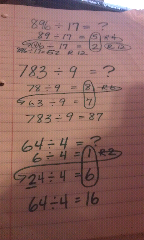 896 ÷ 17 = ?
89 ÷ 17 = 5 R 4
46 ÷ 17 = 2 R 12
896 ÷ 17 = 52 R 12
783 ÷ 9 = ?
78 ÷ 9 = 8 R 6
63 ÷ 9 = 7
783 ÷ 9 = 87
64 ÷ 4 = ?
6 ÷ 4 = 1 R 2
24 ÷ 4 = 6
64 ÷ 4 = 16